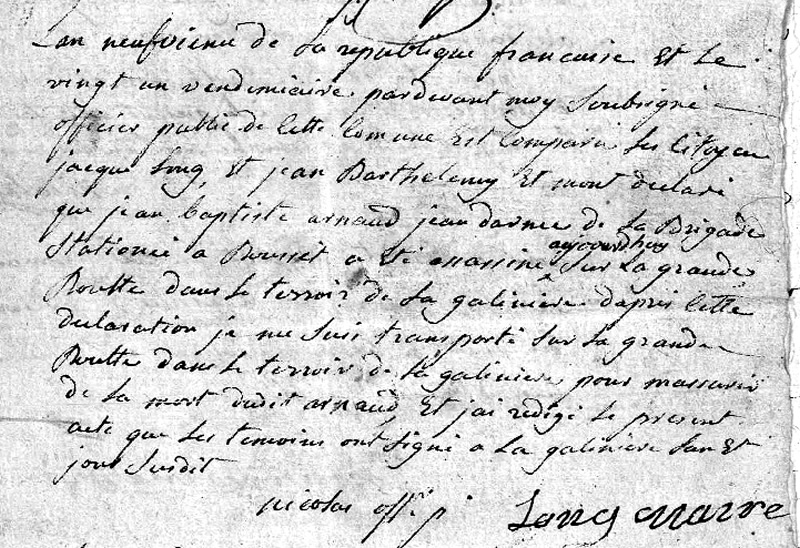 Lan neufvieme de la republique francaise et le
vingt un vendemiaire pardevant moy soubsigné
officier public de cette comune est comparu les citoyen
jacque long, et jean Barthelemy et mont declaré
que jean baptiste arnaud jeandarme de la Brigade
aujourdhuy
stationée a Rousset a été assassiné sur la grande
Routte dans le terroir de la galiniere daprés cette
declaration je me suis transporté sur la grande
Routte dans le terroir de la galiniere pour massurer
de la mort dudit arnaud et jai redigé le present
acte que les temoins ont signé a la galiniere lan et
jour susdit
nicolas off. p. Long marre